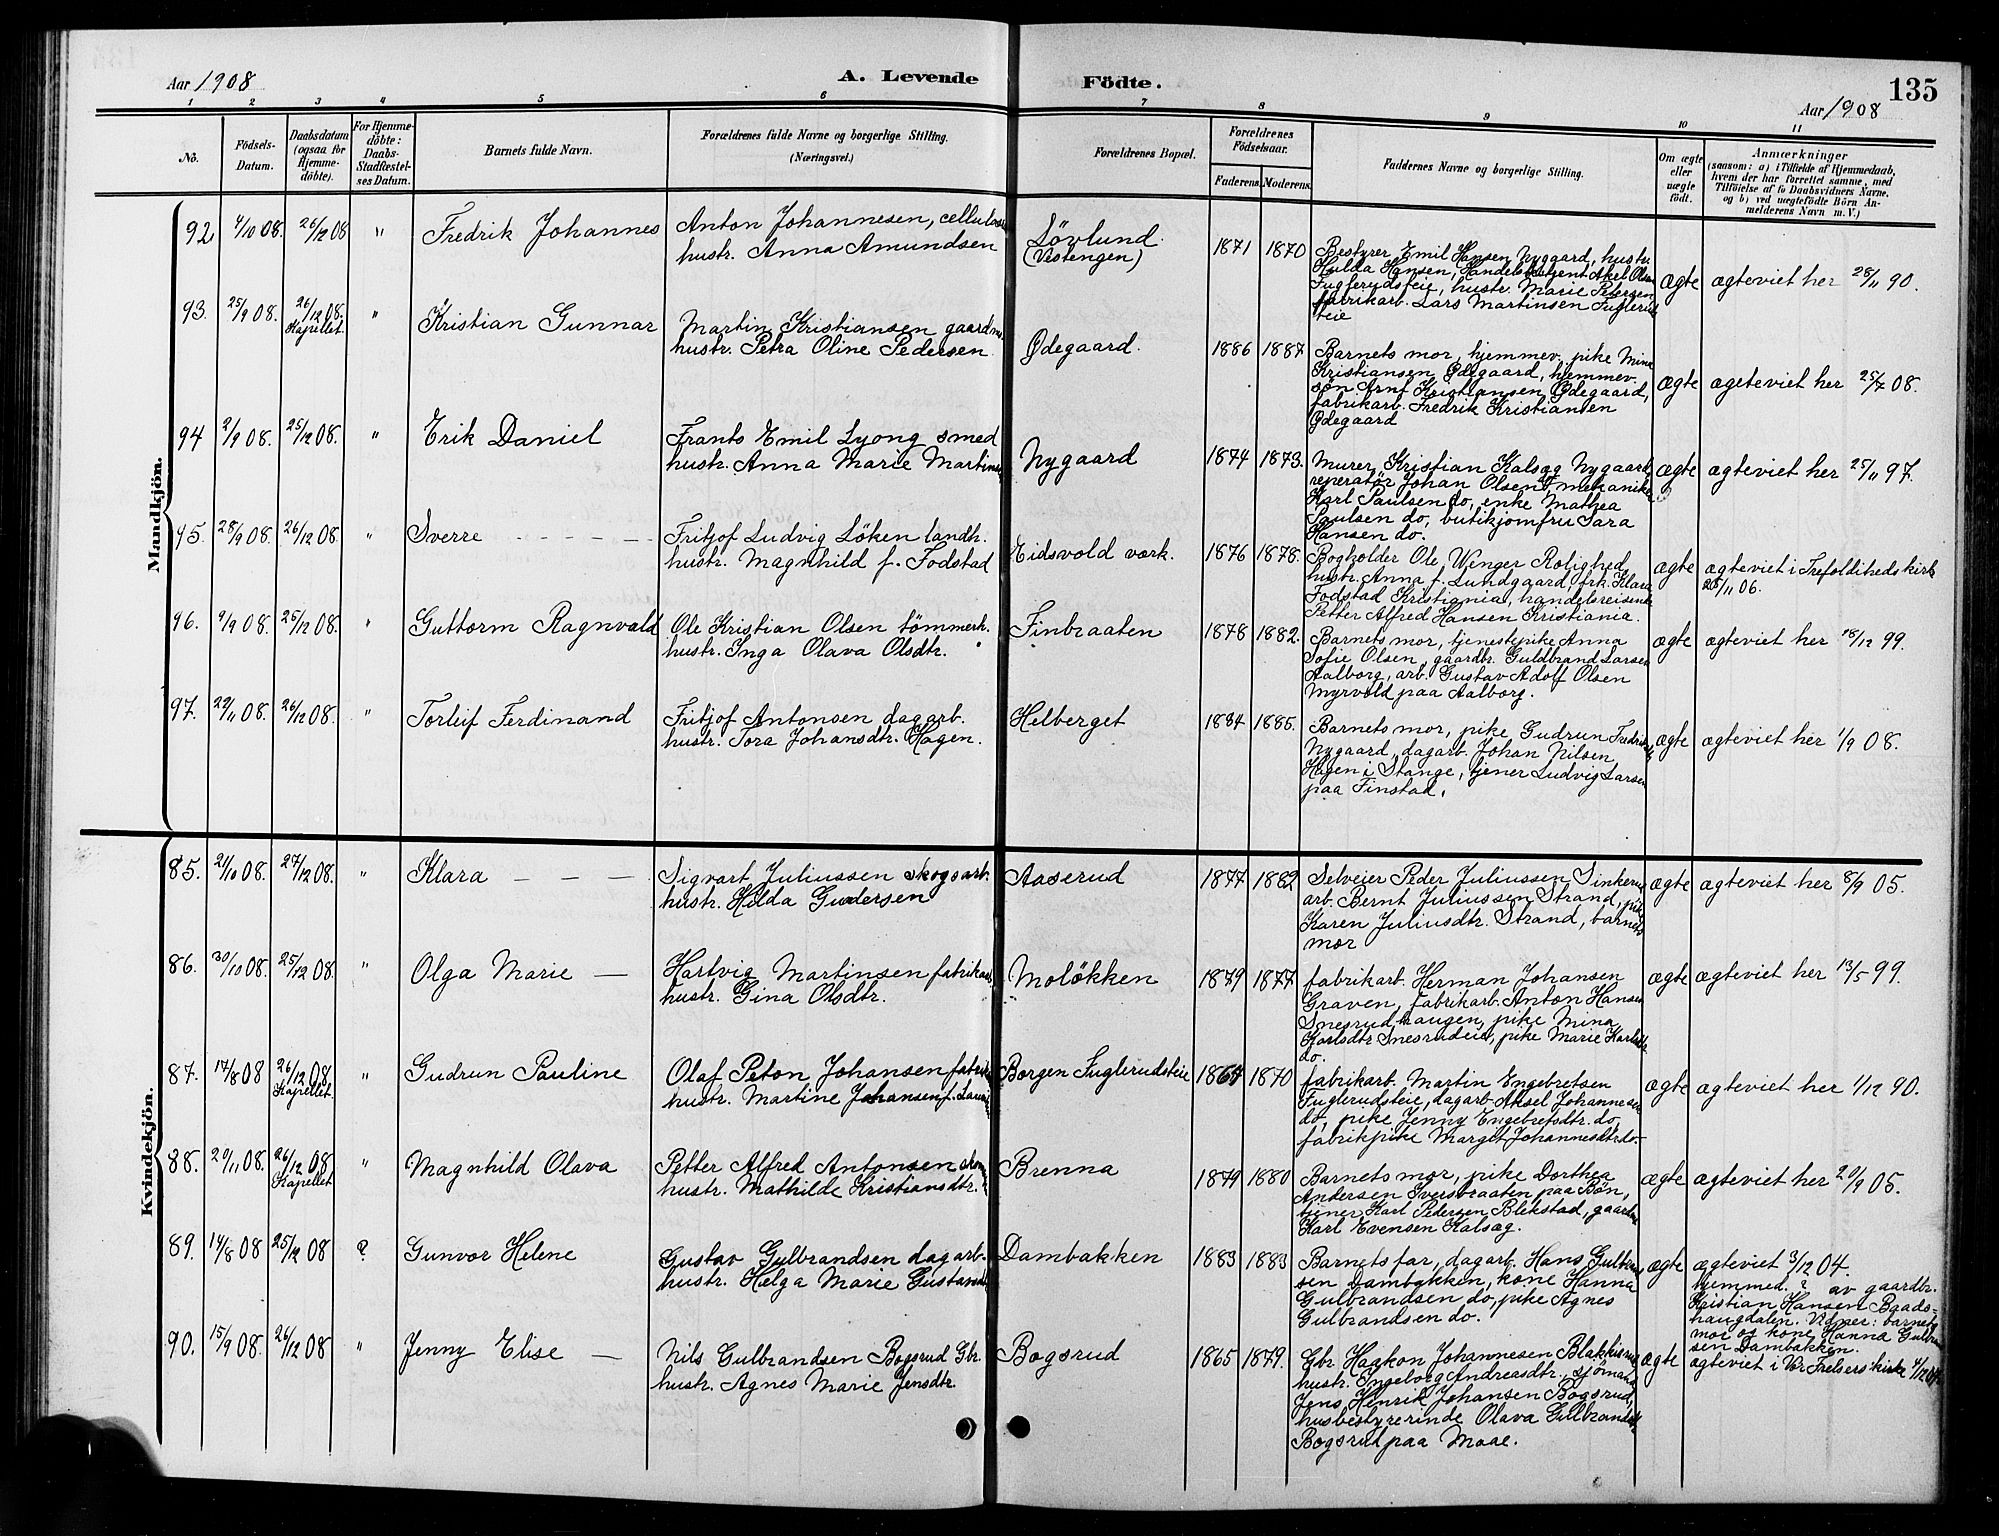 Aar 1908
A. Levende
Födte.
135
Aar 1908
1 2 3 4 5 6 7 8 9 10 11
No.
Födsels-
Datum.
Daabsdatum
(ogsaa for
Hjemme-
döbte).
For Hjemme-
döbte:
Daabs-
Stadfæstel-
ses Datum.
Barnets fulde Navn.
Forældrenes fulde Navne og borgerlige Stilling.
(Næringsvei.)
Forældrenes Bopæl.
Forældrenes
Födselsaar.
Faderens. Moderens.
Faddernes Navne og borgerlige Stilling.
Om ægte
eller
uægte
födt.
Anmærkninger
(saasom: a) i Tilfælde af Hjemmedaab,
hvem der har forrettet samme, med
Tilföielse af to Daabsvidners Navne.
og b) ved uægtefödte Börn An-
melderens Navn m. V.)
Mandkjön.
92 4/10 08. 26/12 08 " Fredrik Johannes
Anton Johannesen,
hustr. Anna Amundsen
Lövlund.
(Vestengen)
1871 1870
Bestyrer Emil Hansen Nygaard, hustr.
Hulda Hansen, Handelsbetjent Aksel Olsen
Fuglerudseie, hustr. Marie Petersen
fabrikarb. Lars Martinsen Fuglerud
eie
ægte ægteviet her 28/11 90.
93. 25/9 08. 26/12 08.
Kapellet " Kristian Gunnar
Martin Kristiansen
hustr. Petra Oline Pedersen
Ødegaard.
1886 1887
Barnets mor, hjemmev. pike Mina
Kristiansen Ødegaard, hjemmev.
søn Arnt Kristiansen Ødegaard,
fabrikarb. Fredrik Kristiansen
Ødegaard
ægte ægeteviet her 25/7 08.
94 2/9 08. 25/12 08. " Erik Daniel
Frants Emil Lyong smed
hustr. Anna Marie Martinsen
Nygaard
1874 1873.
Murer Kristian Kalsæg Nygaard
reperatör Johan Olsen do, mekaniker
Karl Paulsen do, enke Mathea
Paulsen do, butikjomfru Sara
Hansen do.
ægte ægteviet her 25/11 97.
95. 28/9 08. 26/12 08. " Sverre - - - - -
Fritjof Ludvig Löken landh.
hustr. Magnhild f. Fodstad
Eidsvold værk.
1876 1878.
Bogholder Ole Winger Rolighed,
hustr. Anna f. Lundgaard, frk. Klara
Fodstad Kristiania, handelsreisende
Petter Alfred Hansen Kristiania.
ægte ægteviet i Trefoldigheds kirke
28/11 06.
96. 9/9 08. 25/12 08. " Guttorm Ragnvald
Ole Kristian Olsen tömmerh.
hustr. Inga Olava Olsdtr.
Finbraaten
1878 1882.
Barnets mor, tjenestepike Anna
Sofie Olsen, gaardbr. Guldbrand Larsen
Aalborg, arb. Gustav Adolf Olsen
Myrvold paa Aalborg.
ægte ægteviet her 18/12 99.
97. 29/11 08. 26/12 08. " Torleif Ferdinand
Fritjof Antonsen dagarb.
hustr. Tora Johansdtr. Hagen.
Helberget
1884 1885.
Barnets mor, pike Gudrun
Nygaard, dagarb. Johan Nilsen
Hagen i Stange, tjener Ludvig Larsen
paa Finstad.
ægte ægteviet her 1/9 08.
Kvindekjön.
85. 21/10 08. 27/12 08. " Klara - - -
Sigvart Juliussen skogsarb.
hustr. Hilda Gundersen
Aaserud
1877 1882
Selveier Peder Juliussen Sinkerud
arb. Bernt Juliussen Strand, pike
Karen Juliusdtr. Strand, barnets
mor
ægte ægteviet her 8/9 05.
86. 30/10 08. 25/12 08. " Olga Marie -
Hartvig Martinsen fabrikarb.
hustr. Gina Olsdtr.
Moløkken
1879 1877
fabrikarb. Herman Johansen
Graven, fabrikarb. Anton Hansen
Snesrudhaugen, pike Mina
Karlsdtr. Snesrudeie, pike Marie Karlsdtr.
do.
ægte ægteviet her 13/5 99.
87. 17/8 08 26/12 08
Kapellet. " Gudrun Pauline
Olaf Peton Johansen
hustr. Martine Johansen f.
Borgen Fuglerudseie
1867 1870
fabrikarb. Martin Engebretsen
Fuglerudseie, dagarb. Aksel Johannesen
do, pike Jenny Engebretsdtr. do,
fabrikpike Margit Johannesdtr. do.
ægte ægteviet her 1/12 90.
88. 29/11 08. 26/12 08
Kapellet " Magnhild Olava
Petter Alfred Antonsen
hustr. Mathilde Kristiansdtr.
Brenna
1879 1880
Barnets mor, pike Dorthea
Andersen Iversbraaten paa Bön,
tjener Karl Pedersen Blekstad, gaardbr.
Karl Evensen Kalsæg.
ægte ægteviet her 20/9 05.
89. 14/8 08 25/12 08 ? Gunvor Helene
Gustav Gulbrandsen dagarb.
hustr. Helga Marie
Dambakken
1883 1883
Barnets far, dagarb. Hans Gulbrand
sen Dambakken, kone Hanna
Gulbrandsen do, pike Agnes
Gulbrandsen do.
ægte ægteviet 3/12 04.
hjemmed. ? av gaardbr.
Kristian Hansen Baads-
haugdalen. Vidner: barnets
mor og kone Hanna Gulbrand
sen Dambakken.
90. 15/9 08. 26/12 08 " Jenny Elise -
Nils Gulbrandsen Bogsrud Gbr.
hustr. Agnes Marie Jensdtr.
Bogsrud
1865 1879.
Gbr. Haakon Johannesen Blakkisrud
hustr. Ingeborg Andreasdtr., sjömand
Jens Henrik Johansen Bogsrud,
husbestyrerinde Olava Gulbrandsdtr.
Bogsrud paa Maae.
ægte ægteviet i Vor Frelsers kirke